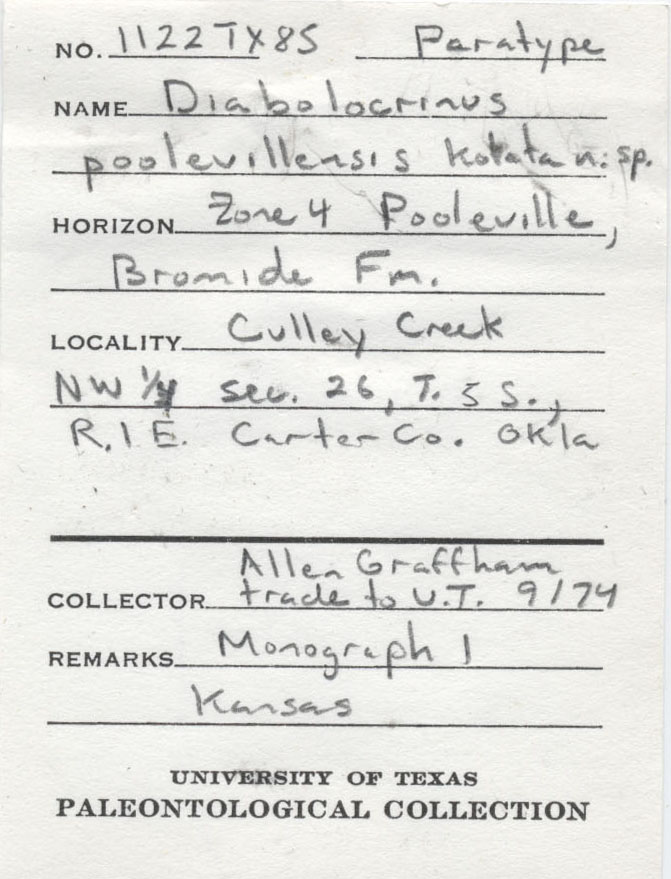 NO. 1122TX85 Paratype
NAME Diabolocrinus
poolevillensis kolata n. sp.
HORIZON Zone 4 Pooleville,
Bromide Fm.
LOCALITY Culley Creek
NW 1/4 sec. 26, T. 5 S.,
R. 1 E. Carter Co. Okla
Allen Graffham
COLLECTOR trade to U.T. 9/74
REMARKS Monograph 1
Kansas
UNIVERSITY OF TEXAS
PALEONTOLOGICAL COLLECTION